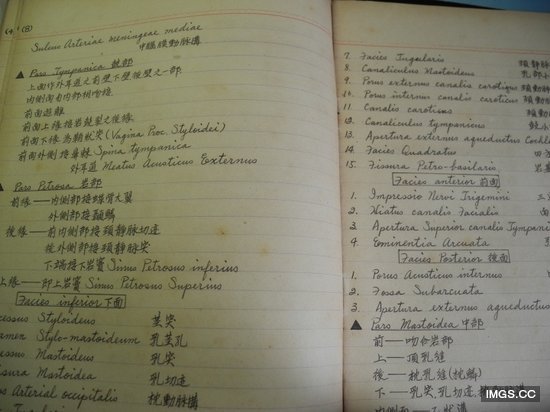 (4) (B)
Sulcus Arteriae meningeae mediae
中腦膜動脈溝
▲ Pars Tympanica 鼓部
上面作外耳道之前壁下壁後壁之一部.
内側面与内部相吻接.
前面遊離
前面上緣接岩鼓裂之後緣.
前面下緣為鞘狀突 (Vagina Proc. Styloidei)
前面外側接鼓棘 Spina tympanica
外耳道 Meatus Acusticus Externus
▲ Pars Petrosa 岩部
前緣 — 内側部接蝶骨大翼
外側部接顳鱗
後緣 — 前内側部接頸靜脈切迹
後外側部接頸靜脈突
下端接下岩竇 Sinus Petrosus inferius
上緣 — 即上岩竇 Sinus Petrosus Superius
Facies inferior 下面
cessus Styloideus 莖突
amen Stylo-mastoideum 乳莖孔
essus Mastoideus 乳突
sura Mastoidea 乳切迹
us Arterial occipitalis 枕動脈溝
7. Facies Jugularis 頸靜脈
8. Canaliculus Mastoideus 乳
9. Porus externus canalis carotigus 頸動
10. Porus internus canalis caroticus 頸動
11. Canalis caroticus 頸動
12. Canaliculus tympanicus 鼓小
13. Apertura externus aqueductus Cochl
14. Facies Quadratus 四
15. Fissura Petro-basilaris 岩
Facies anterior 前面
1. Impressio Nervi Trigemini 三
2. Hiatus canalis Facialis 面
3. Apertura Superior canalis Tympani
4. Eminentia Arcuata
Facies Posterior 後面
1. Porus Acusticus internus
2. Fossa Subarcuata
3. Apertura externus aqueductus
▲ Pars Mastoidea 中部
前 — 吻合岩部
上 — 頂乳縫
後 — 枕乳縫(枕鱗)
下 — 乳突, 乳切迹,
IMGS.CC